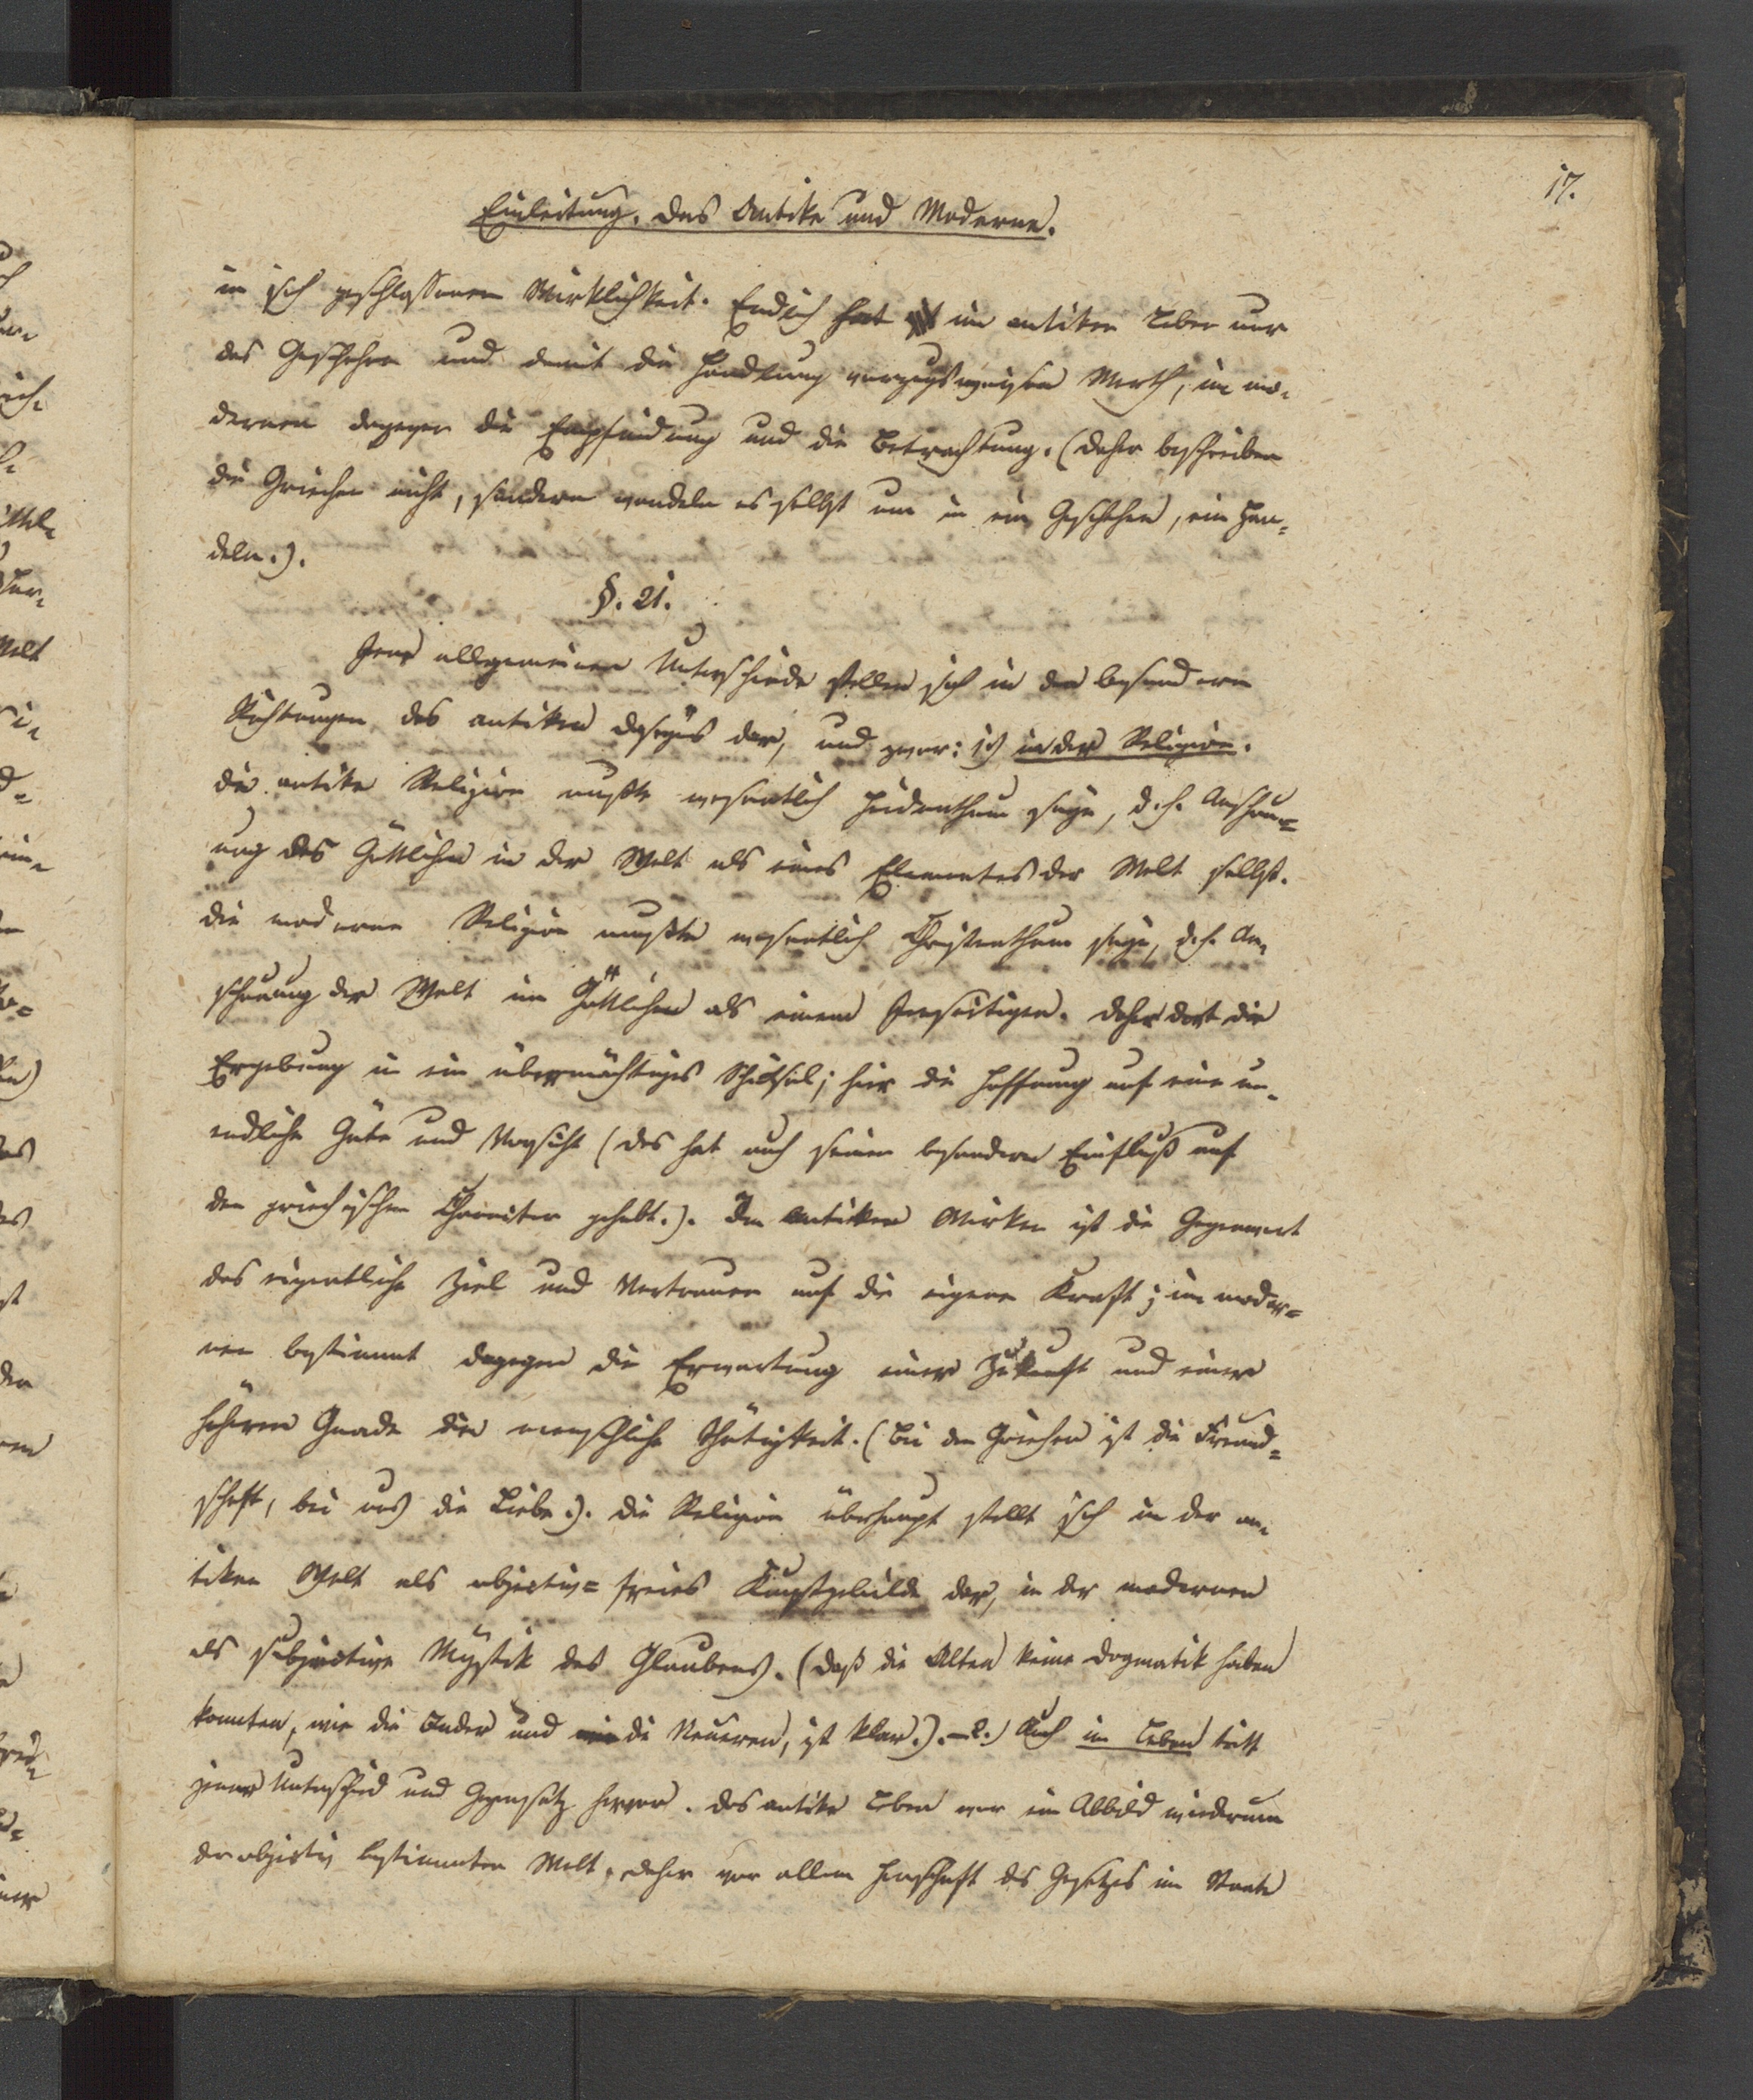 17.
Einleitung. Das Antike und Moderne.
in sich geschlossenen Wirklichkeit. Endlich hat im antiken Leben nur
das Geschehen und damit die Handlung vorzugsweisen Werth, im mo-
dernen dagegen die Empfindung und die Betrachtung. (Daher beschreiben
die Griechen nicht, sondern wandeln es selbst um in ein Geschehen, ein Han=
deln.).
§. 21.
Jene allgemeinen Unterschiede stellen sich in den besonderen
Richtungen des antiken Daseyns dar, und zwar: 1) in der Religion.
Die antike Religion mußte wesentlich Heidenthum seyn, d. h. Anschau=
ung des Göttlichen in der Welt als eines Elementes der Welt selbst.
Die moderne Religion mußte wesentlich Christenthum seyn, d. h. An-
schauung der Welt im Göttlichen als einem Jenseitigen. Daher dort die
Ergebung in ein übermächtiges Schicksal; hier die Hoffnung auf eine un-
endliche Güte und Vorsicht (das hat auch seinen besondern Einfluß auf
den griechischen gehabt.). Im antiken Wirken ist die Gegenwart
das eigentliche Ziel und Vertrauen auf die eigene Kraft; im moder=
nen bestimmt dagegen die Erwartung einer Zukunft und einer
höheren Gnade die menschliche Thätigkeit. (Bei den Griechen ist die Freund=
schaft, bei uns die Liebe.). Die Religion überhaupt stellt sich in der an-
tiken Welt als objectiv=freies Kunstgebilde dar, in der modernen
als subjective Mystik des Glaubens. (Daß die Alten keine Dogmatik haben
konnten, wie die Inder und die Neueren, ist klar.). — 2.) Auch im Leben tritt
jener Unterschied und Gegensatz hervor. Das antike Leben war ein Abbild wiederum
der objectiv bestimmten Welt, daher vor allem Herrschaft des Gesetzes im Staate